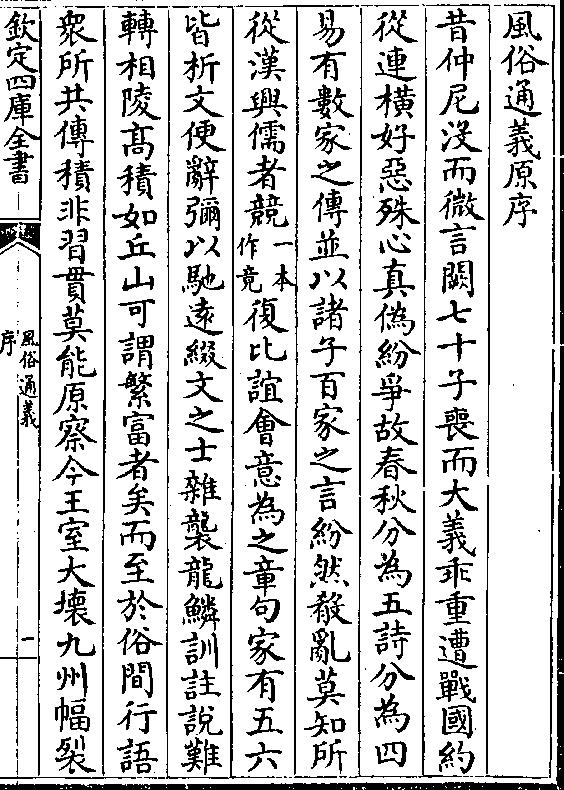 風俗通義原序
昔仲尼沒而微言闕七十子喪而大義乖重遭戰國約
從連橫好惡殊心真偽紛爭故春秋分為五詩分為四
易有數家之傳並以諸子百家之言紛然殽亂莫知所
從漢興儒者競一本作竟復比誼會意為之章句家有五六
皆析文便辭彌以馳逺綴文之士雜襲龍鱗訓註說難
轉相陵髙積如丘山可謂繁富者矣而至於俗間行語
衆所共傳積非習貫莫能原察今王室大壞九州幅裂
欽定四庫全書
風俗通義
序
一